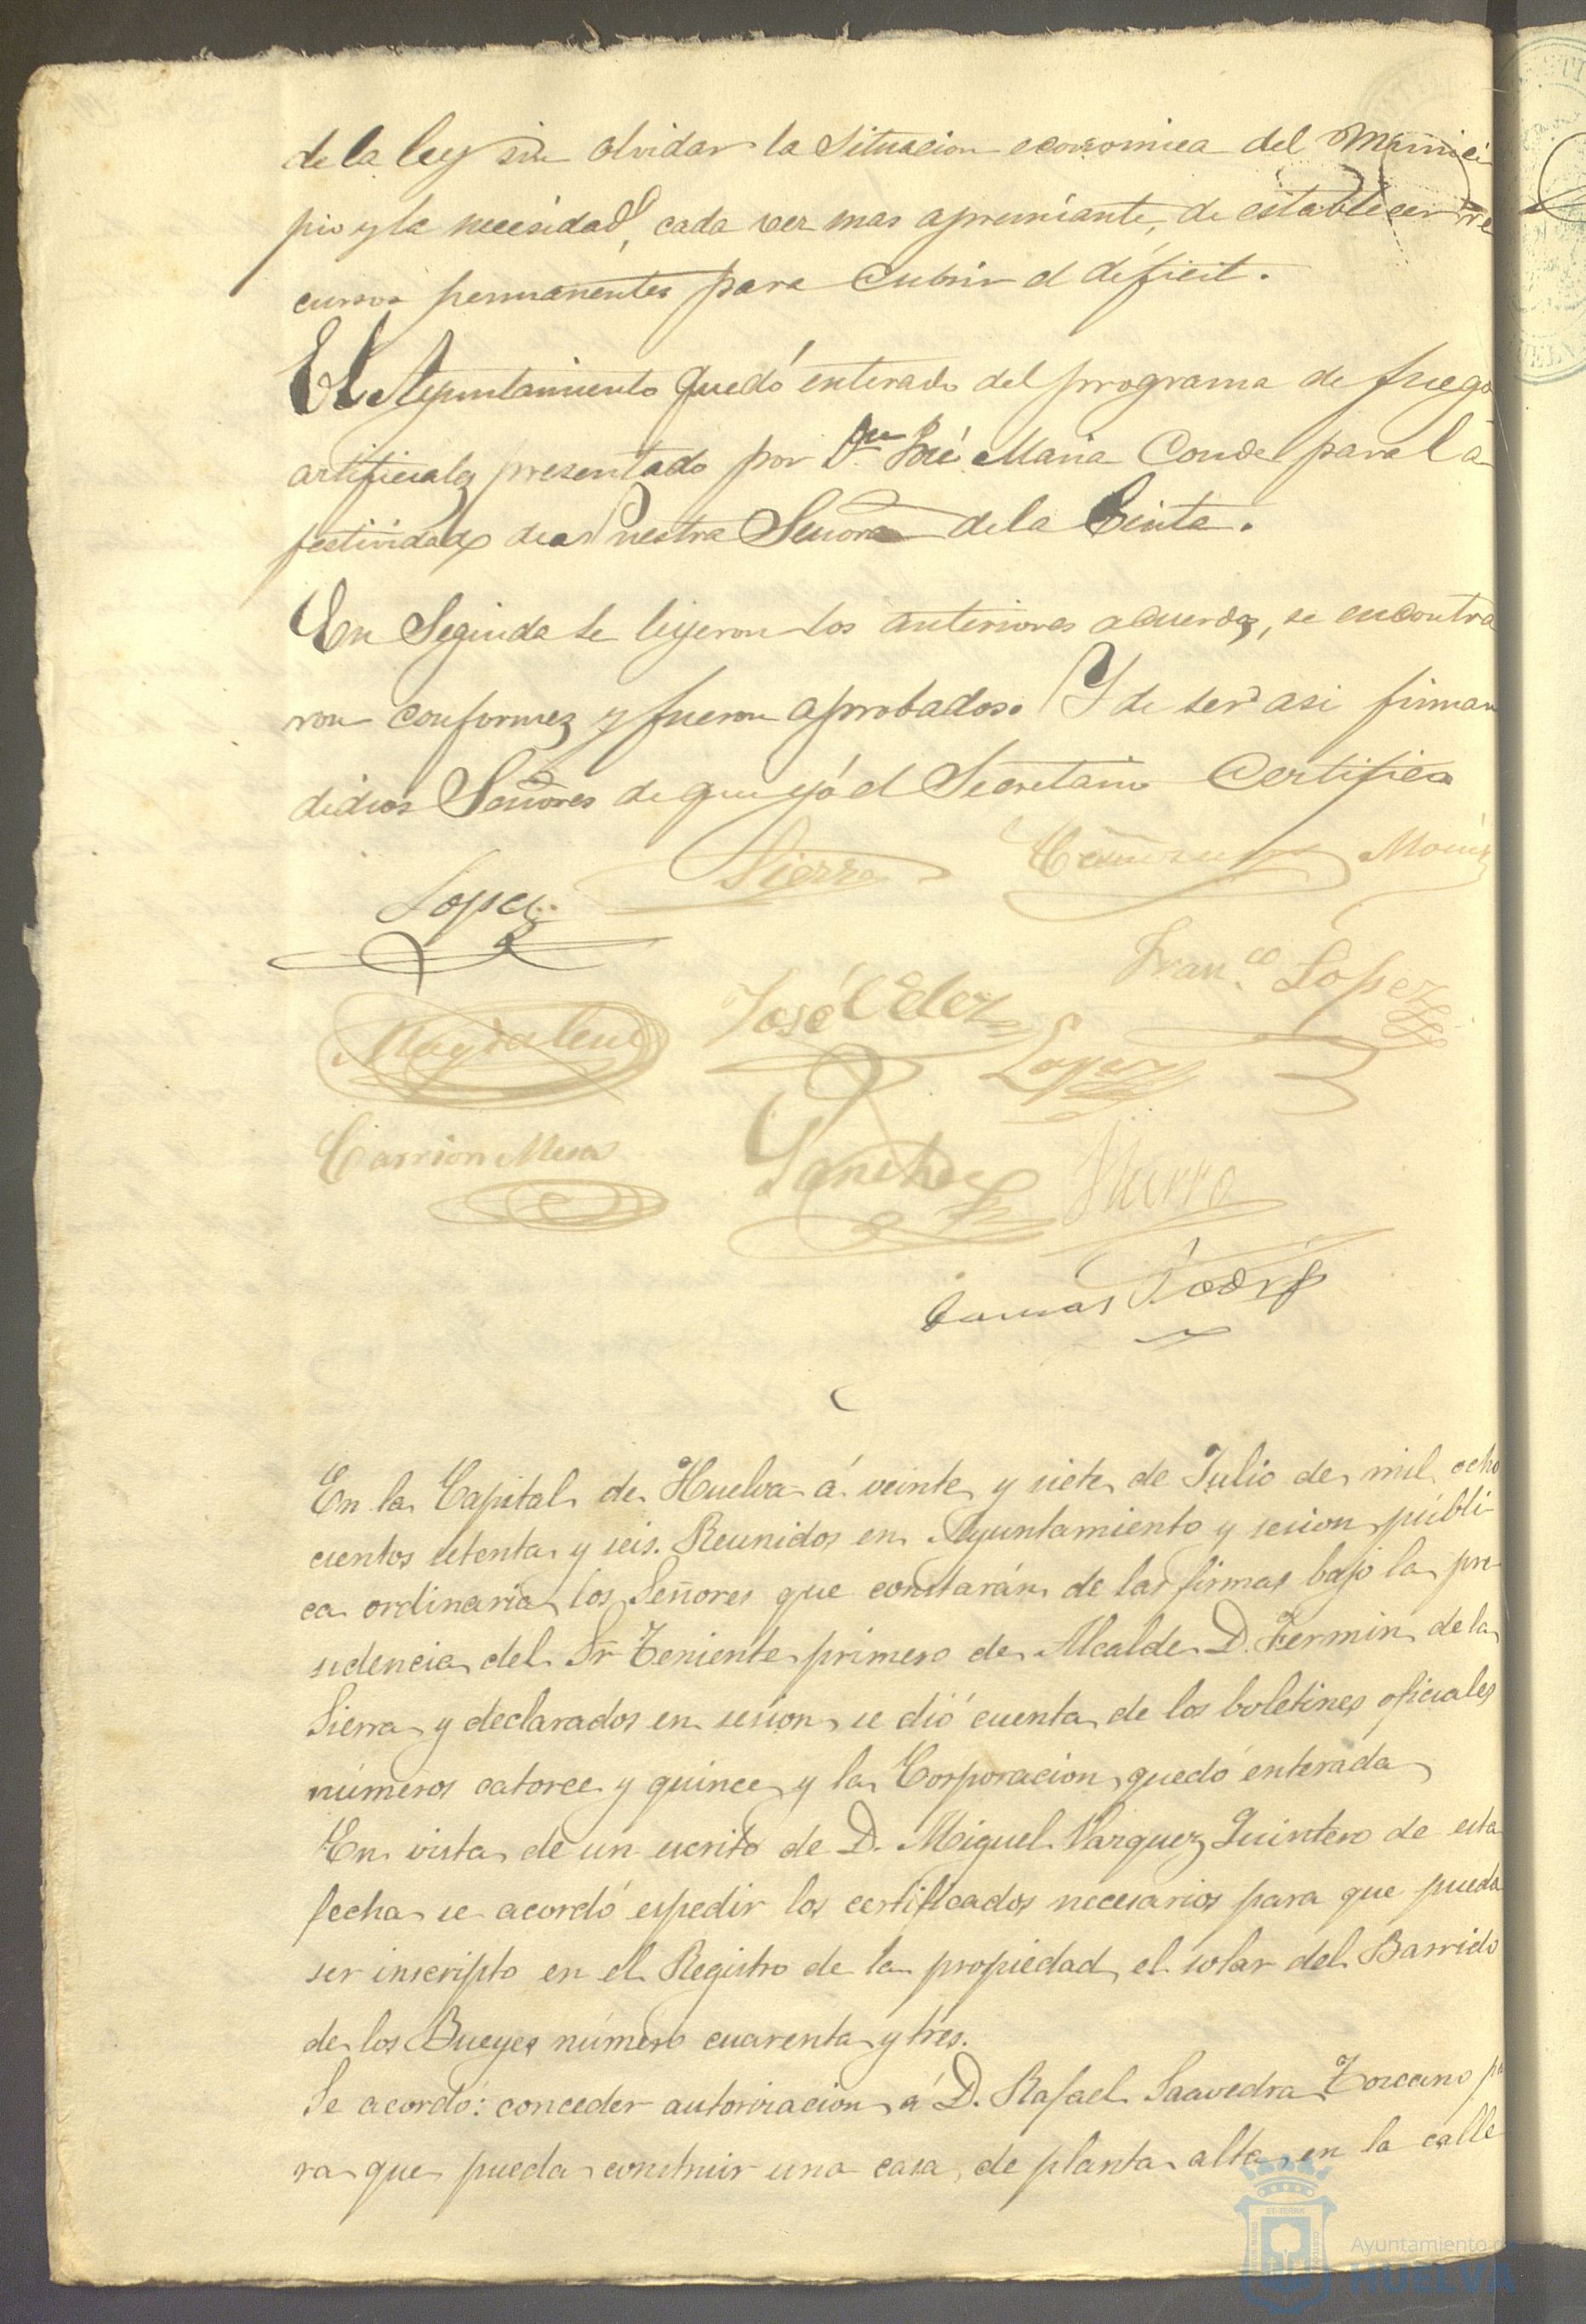 de la ley sin olvidar la situacion economica del Munici
pio y la necesidad, cada vez mas apremiante, de establecer re
cursos permanentes para cubrir el déficit.
El Ayuntamiento quedó enterado del programa de fuegos
artificiales presentado por Dn José Maria Conde para la
festividad de Nuestra Señora de la Cinta.
En Seguida se leyeron los anteriores acuerdos, se encontra
ron conformes y fueron aprobados. Y de ser asi firman
dichos Señores de que yo el Secretario Certifico
Lopez Sierra
José Velez Franco Lopez
Magdalena Lopez
Carrion Mesa Sanchez
Tomas Rodrig
En la Capital de Huelva á veinte y siete de Julio de mil ocho
cientos setenta y seis. Reunidos en Ayuntamiento y sesion públi
ca ordinaria los Señores que constarán de las firmas bajo la pre
sidencia del Sr Teniente primero de Alcalde D. Fermin de la
Sierra y declarados en sesion se dió cuenta de los boletines oficiales
números catorce y quince y la Corporacion quedó enterada
En vista de un escrito de D. Miguel Vazquez Quintero de esta
fecha se acordó espedir los certificados necesarios para que pueda
ser inscripto en el Registro de la propiedad el solar del Barrido
de los Bueyes número cuarenta y tres.
Se acordó: conceder autorizacion á D. Rafael Saavedra Toscano pa
ra que pueda construir una casa de planta alta en la calle
Ayuntamiento de
HUELVA